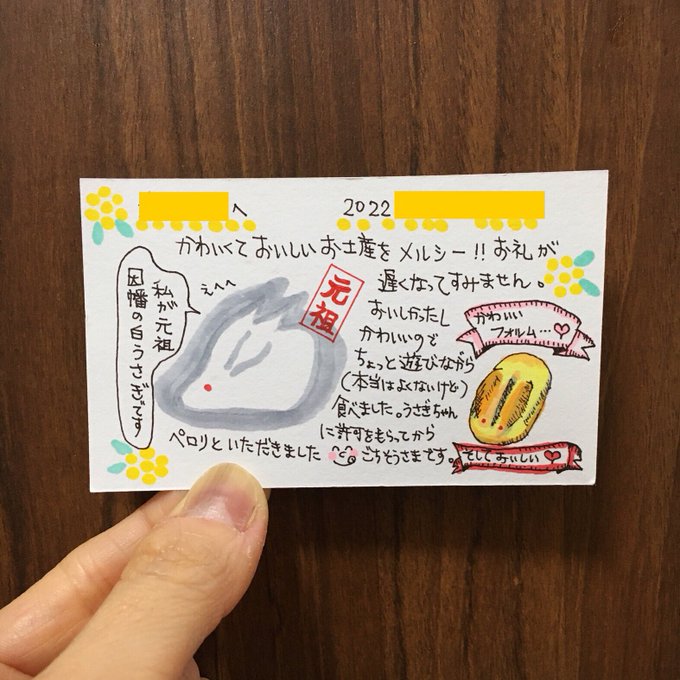 へ
2022
かわいくておいしいお土産をメルシー!!お礼が
遅くなってすみません。
おいしかったし
かわいいので
ちょっと遊びながら
(本当はよくないけど)
食べました。うさぎちゃん
に許可をもらってから
ペロリといただきました
ごちそうさまです。
私が元祖
因幡の白うさぎです
えへへ
元祖
かわいい
フォルム…
そしておいしい